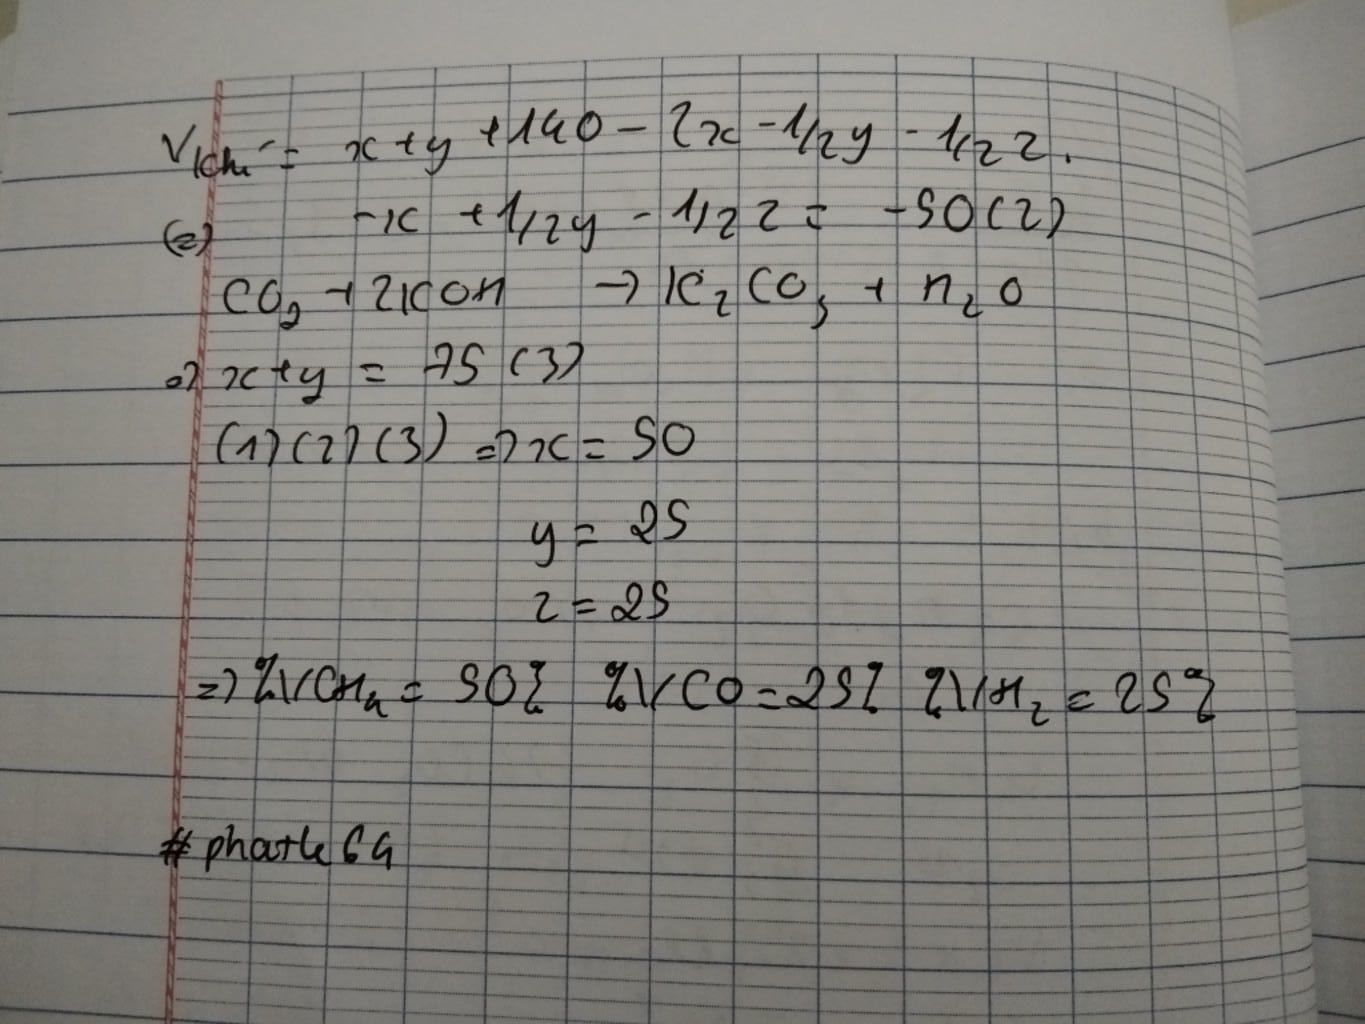 Vkhí = x + y + 140 - 2x - 1/2y - 1/2z.
(=) -x + 1/2y - 1/2z = -50 (2)
CO2 + 2KOH → K2CO3 + H2O
=> x + y = 75 (3)
(1)(2)(3) => x = 50
y = 25
z = 25
=> %VCH4 = 50% %VCO = 25% %VH2 = 25%
#phatle64